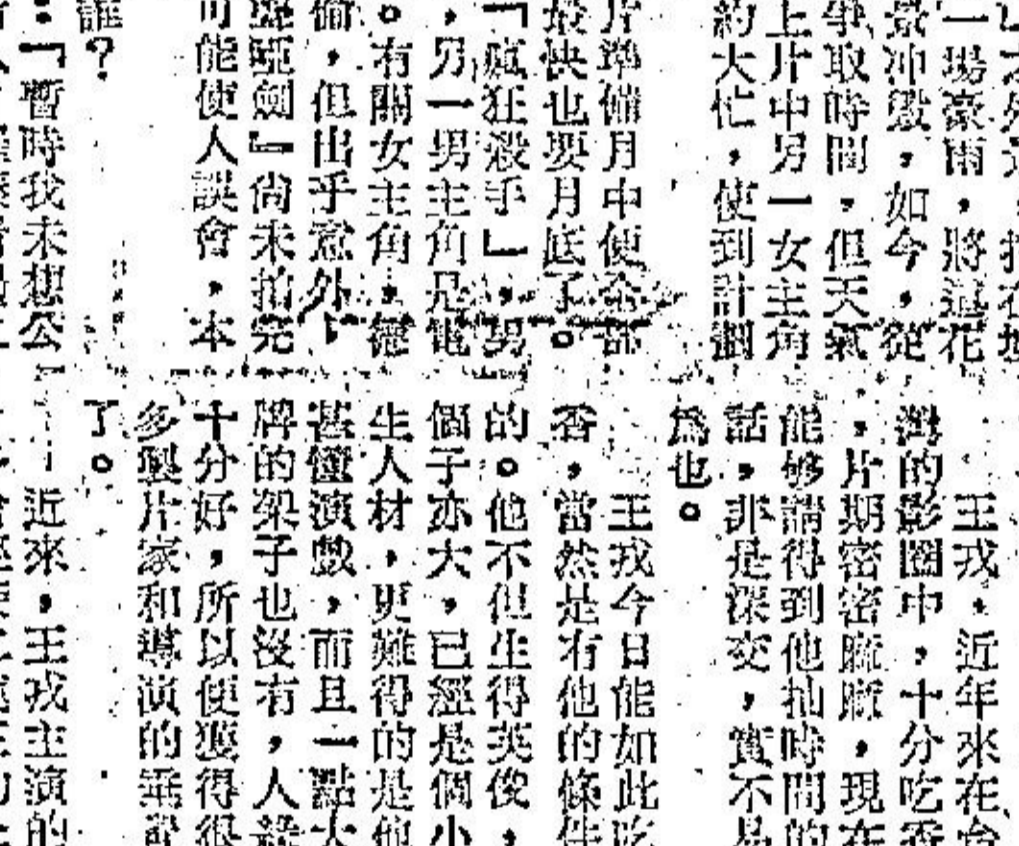 一場豪雨，將這花
景冲毀，如今，從
爭取時間，但天氣
上片中另一女主角
約大忙，使到計劃
片準備月中便全部
最快也要月底了。
「瘋狂殺手」，男
，另一男主角是電
。有關女主角，
偷，但出乎意外，
啞劍』尚未拍完
可能使人誤會，本
誰？
：「暫時我未想公
王戎，近年來在台
灣的影圈中，十分吃香
，片期密密麻麻，現在
能够請得到他抽時間的
話，非是深交，實不易
爲也。
王戎今日能如此吃
香，當然是有他的條件
的。他不但生得英俊，
個子亦大，已經是個小
生人材，更難得的是他
甚懂演戲，而且一點大
牌的架子也沒有，人緣
十分好，所以便獲得很
多製片家和導演的垂青
了。
近來，王戎主演的